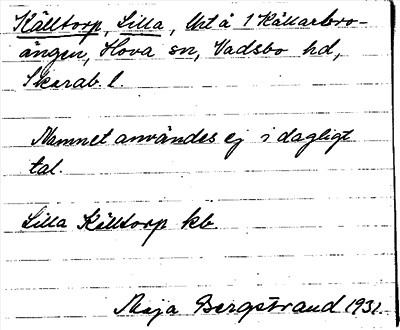 Källtorp, Lilla, Unl å 1 Källarbro-
ängen, Hova sn, Vadsbo hd,
Skarab. l.
Namnet användes ej i dagligt
tal.
Lilla Källtorp kb.
Maja Bergstrand 1931.